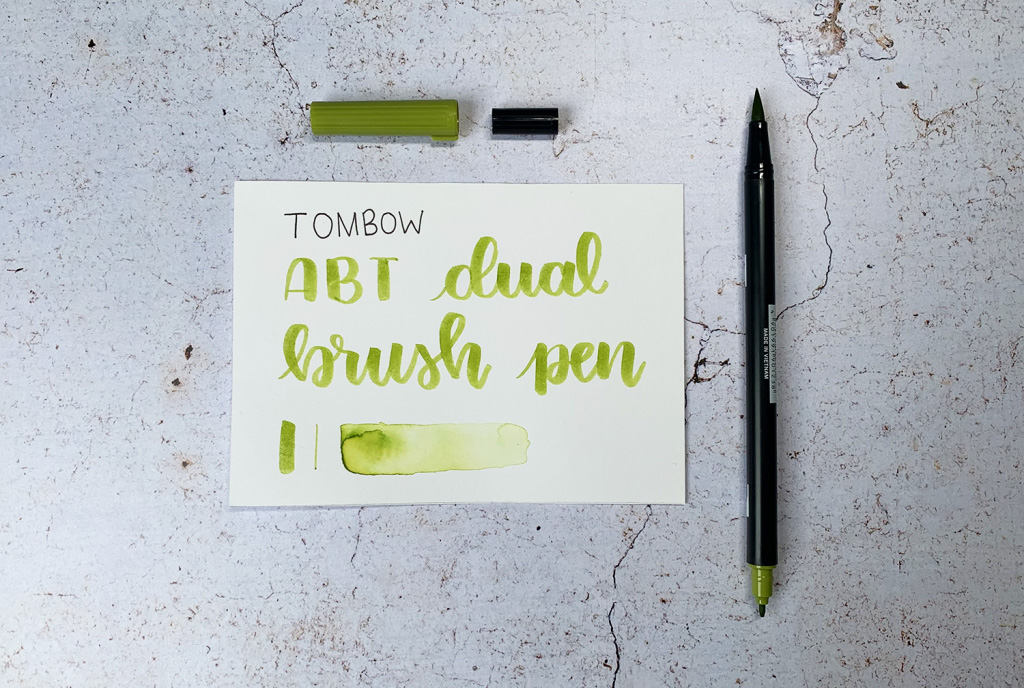 TOMBOW
ABT dual
brush pen
MADE IN VIETNAM